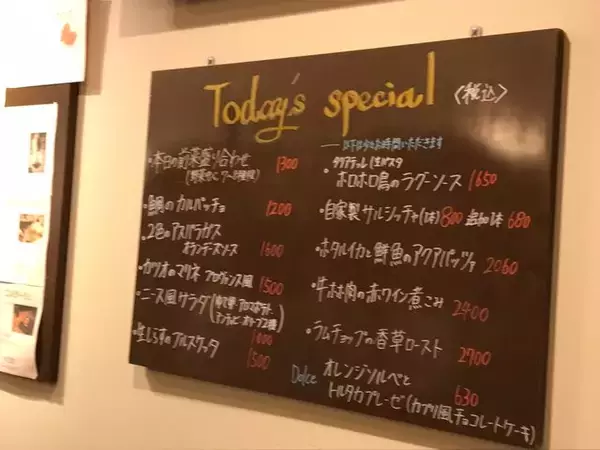 Today's special
〈税込〉
・本日の前菜盛り合わせ 1300
・鯛のカルパッチョ 1200
・2色のアスパラガス
オランデーズソース 1600
・カツオのマリネ プロヴァンス風 1500
・ニース風サラダ
1000
・生しらすのブルスケッタ
1500
以下は少々お時間いただきます
タリアテッレ(生パスタ
・ホロホロ鳥のラグーソース 1650
・自家製サルシッチャ(1本)800 追加1本680
・ホタルイカと鮮魚のアクアパッツァ 2060
・牛ホホ肉の赤ワイン煮こみ 2400
・ラムチョップの香草ロースト 2700
Dolce オレンジソルベと
トルタカプレーゼ(カプリ風チョコレートケーキ) 630